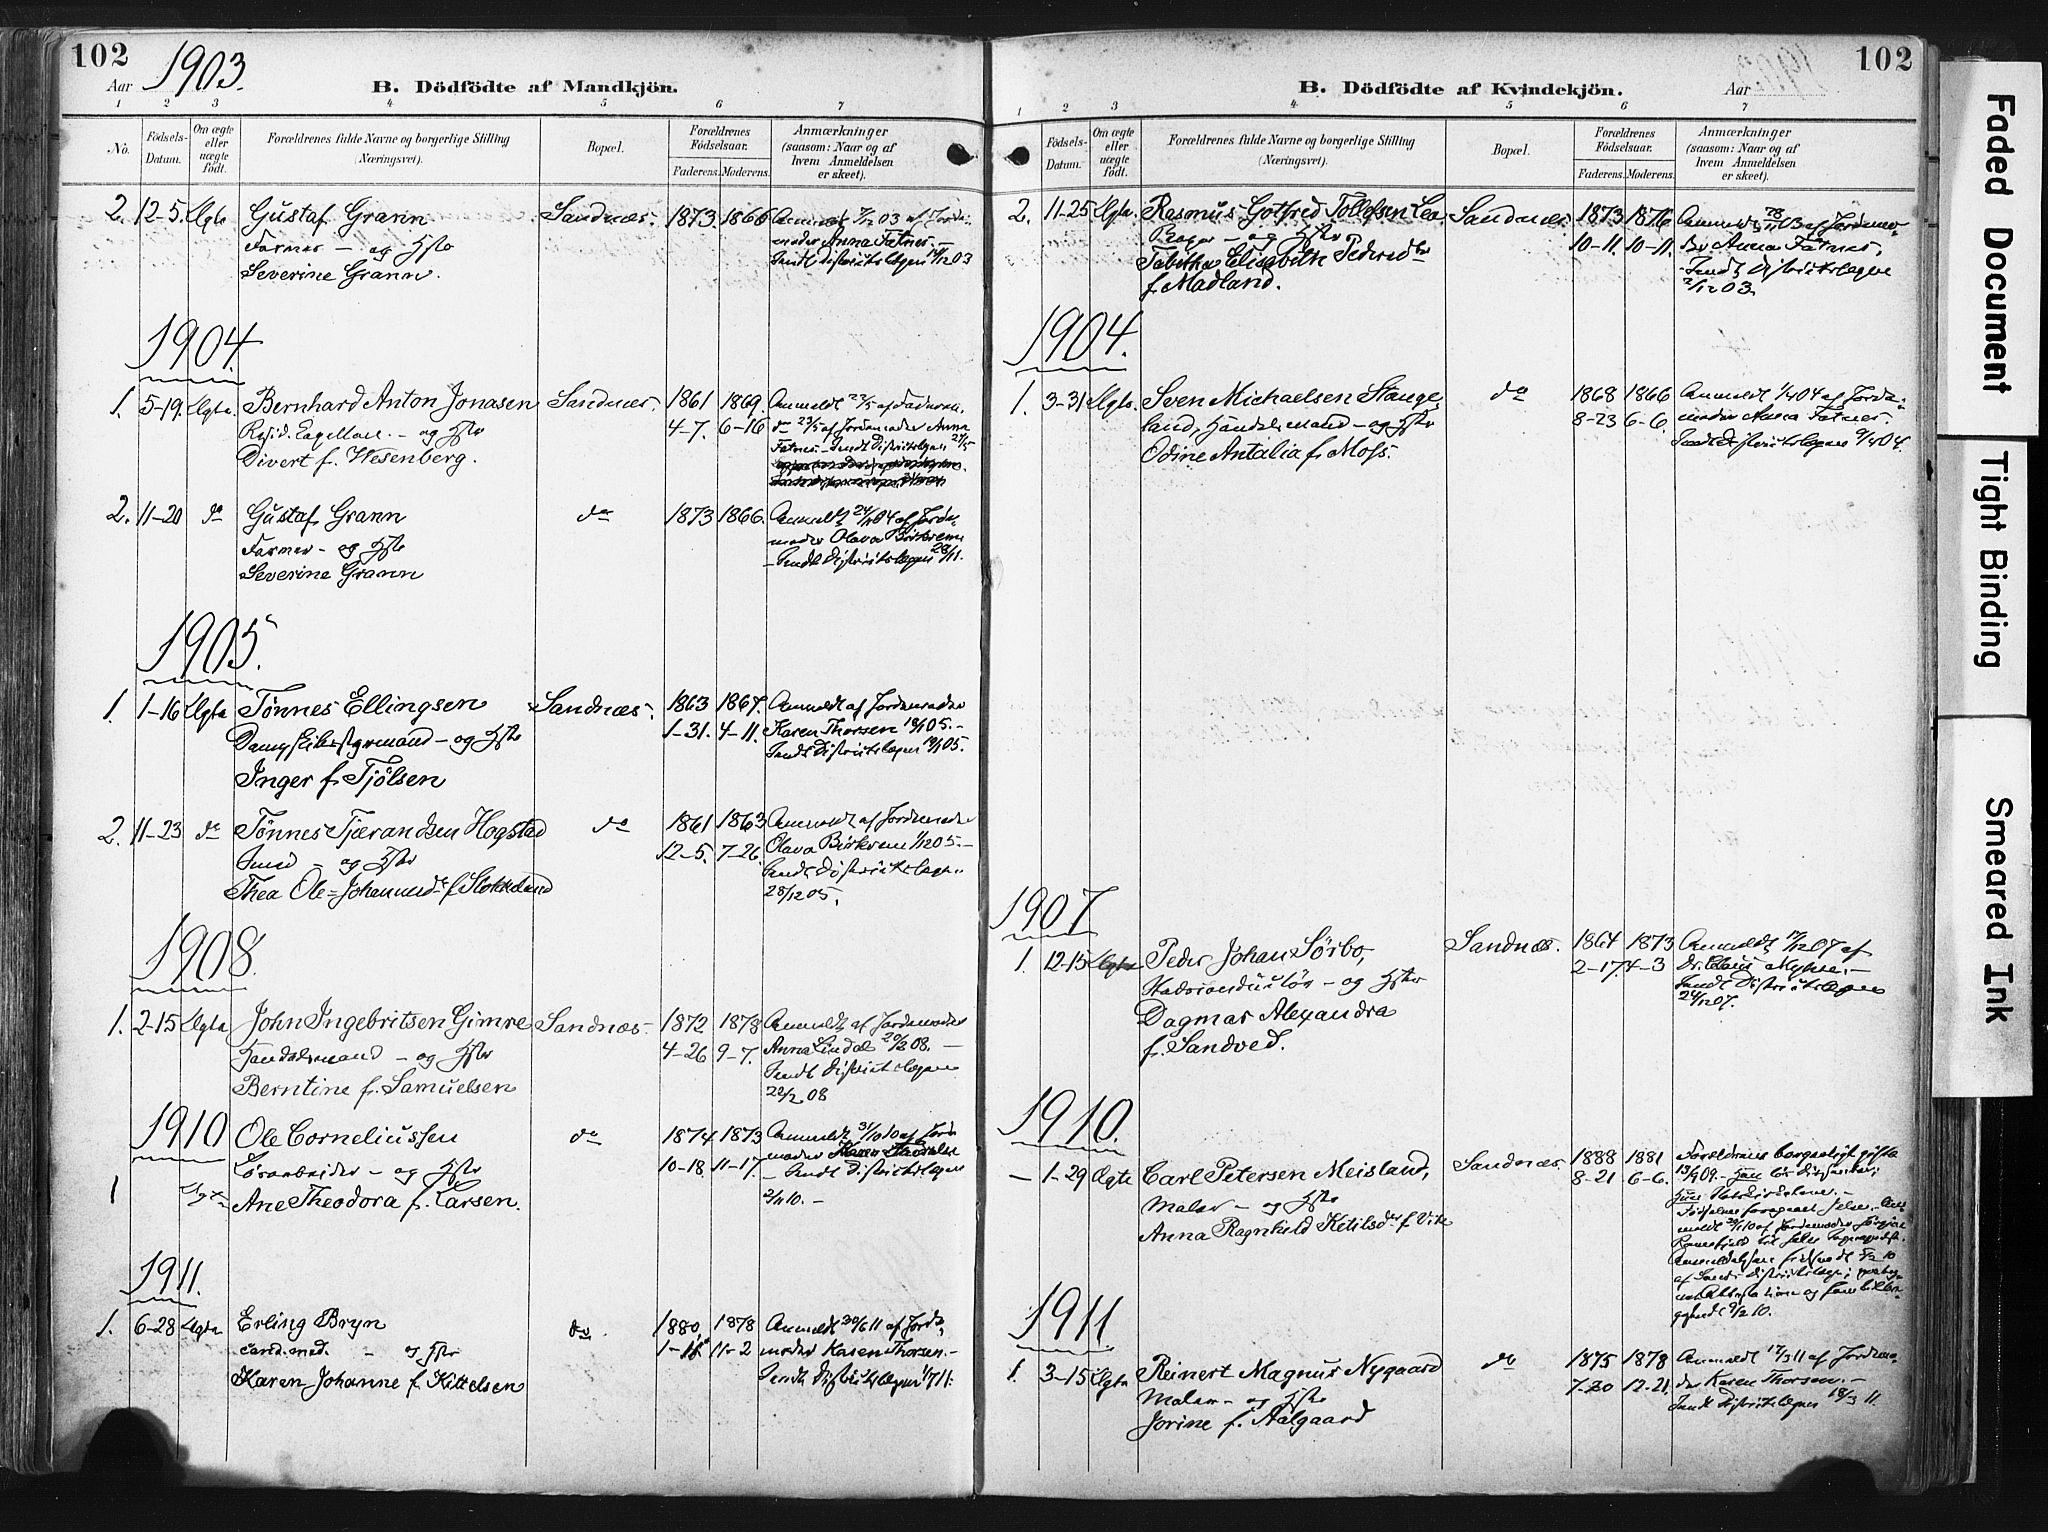 102
1903.
Aar
B. Dödfödte af Mandkjön.
1 2 3 4 5 6 7
No.
Födsels-Datum.
Om ægte eller uægte födt.
Forældrenes fulde Navne og borgerlige Stilling (Næringsvei).
Bopæl.
Forældrenes Födselsaar.
Faderens. Moderens.
Anmærkninger (saasom: Naar og af hvem Anmeldelsen er skeet).
2. 12-5. Ægte Gustaf Grann Sandnæs. 1873. 1866 Anmeldt 7/12 03 af Jorde-
Farmer - og Hstr moder Anna Fatnes.-
Severine Grann. Sendt Distriktslægen 03
1904.
1. 5-19. Ægte. Bernhard Anton Jonasen Sandnæs. 1861 1869 Anmeldt
Resid. Kapellan. - og Hstr 4-7. 6-16 af Jordemoder Anna
Divert f. Wesenberg. Fatnes. - Sendt Distriktslægen
2. 11-20 do Gustaf Grann do 1873 1866. Anmeldt 24/11 04 af Jorde-
Farmer - og Hstr moder Olava Birkrem
Severine Grann - Sendt Distriktslægen 28/11.
1905.
1. 1-16 Ægte Tønnes Ellingsen Sandnæs. 1863 1867. Anmeldt af Jordemoder
Dampskibsstyrmand - og Hstr 1-31. 4-11. Karen Thorsen 18/1 05.-
Inger f. Tjölsen Sendt Distriktslægen 19/1 05.
2. 11-23 do Tønnes Tjærandsen Hogstad do 1861 1863 Anmeldt af Jordemoder
Smed - og Hstr 12-5. 7-26. Olava Birkrem 1/12 05.-
Thea Ole-Johannesdr f. Stokkeland Sendt Distriktslægen
28/12 05.
1908.
1. 2-15 Ægte John Ingebritsen Gimre Sandnæs. 1872 1878 Anmeldt af Jordemoder
Handelsmand - og Hstr 4-26 9-7. Anna Lindal 20/2 08. -
Berntine f. Samuelsen Sendt Distriktslægen
22/2 08
1910 Ole Corneliussen do 1874 1873 Anmeldt 31/10 10 af Jorde
Løsarbeider - og Hstr 10-18. 11-17. moder Karen
1 Ægte Ane Theodora f. Larsen. - Sendt Distriktslægen
2/11 10. -
1911.
1. 6-28 Ægte Erling Bryn do. 1880, 1878 Anmeldt 30/6 11 af Jorde,
cand. med. - og Hstr 1-11 11-2 moder Karen Thorsen.-
Karen Johanne f. Kittelsen Sendt Distriktslægen 1/7 11.
102
Aar
B. Dödfödte af Kvindekjön.
1 2 3 4 5 6 7
Födsels-Datum.
Om ægte eller uægte födt.
Forældrenes fulde Navne og borgerlige Stilling (Næringsvei).
Bopæl.
Forældrenes Födselsaar.
Faderens. Moderens.
Anmærkninger (saasom: Naar og af hvem Anmeldelsen er skeet).
2. 11-25 Ægte. Rasmus Gotfred Tollefsen Lea Sandnæs. 1873 1876 Anmeldt 28/11 03 af Jordemo-
Bager - og Hstr 10-11. 10-11. der Anna Fatnes,
Tabitha Elisabeth Pedersdtr Sendt Distriktslægen
f. Madland. 2/12 03.
1904.
1. 3-31 Ægte. Sven Michaelsen Stange- do 1868 1866 Anmeldt 1/4 04 af Jorde-
land, Handelsmand - og Hstr 8-23 6-6. moder Anna Fatnes.
Odine Antalia f. Moss. Sendt Distriktslægen 9/4 04.
1907
1. 12-15 Ægte Peder Johan Sørbo, Sandnæs. 1864 1873 Anmeldt 17/12 07 af
- og Hstr 2-17. 4-3 Dr. Claus
Dagmar Alexandra Sendt Distriktslægen
f. Sandved. 24/12 07.
1910.
- 1-29 Ægte Carl Petersen Meisland, Sandnæs. 1888 1881 Forældrene borgerligt gifte
Maler - og Hstr 8-21 6-6. 13/4 09.
Anna Ragnhild Ketilsdr f. Vik
1911
1. 3-15 Ægte Reinert Magnus Nygaard do 1875 1878 Anmeldt 17/3 11 af Jordemo-
Maler - og Hstr 7-20 12-21. der Karen Thorsen.-
Jorine f. Aalgaard Sendt Distriktslægen 18/3 11
Faded Document
Tight Binding
Smeared Ink